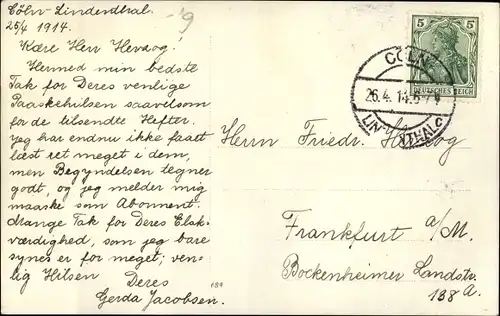 Cöln-Lindenthal
25/4 1914.
Kære Herr Herzog.
Hermed min bedste
Tak for Deres venlige
Paaskehilsen saavelsom
for de tilsendte Hefter.
Jeg har endnu ikke faaet
læst ret meget i dem,
men Begyndelsen tegner
godt, og jeg melder mig
maaske som Abonnent.
Mange Tak for Deres Elsk-
værdighed, som jeg bare
synes er for meget; ven-
lig Hilsen
Deres
Gerda Jacobsen.
189
9
5 5
DEUTSCHES REICH
CÖLN
26.4.14.6-7
Herrn Friedr. Herzog
Frankfurt a/M.
Bockenheimer Landstr.
138 A.